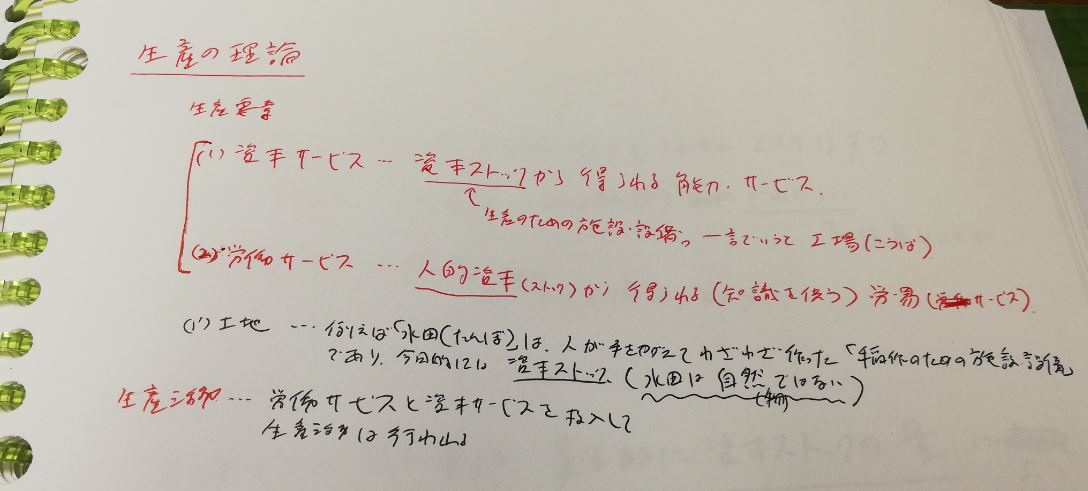 生産の理論
生産要素
(1) 資本サービス … 資本ストックから得られる能力・サービス.
↑生産のための施設・設備。一言でいうと工場(こうば)
(2) 労働サービス … 人的資本(ストック)から得られる(知識を伴う)労務(サービス).
(1') 土地 … 例えば「水田(たんぼ)」は、人が手を加えてわざわざ作った「稲作のための施設・設備」
であり、今日的には資本ストック (水田は自然ではない)
生産活動 … 労働サービスと資本サービスを投入して
生産活動は行われる